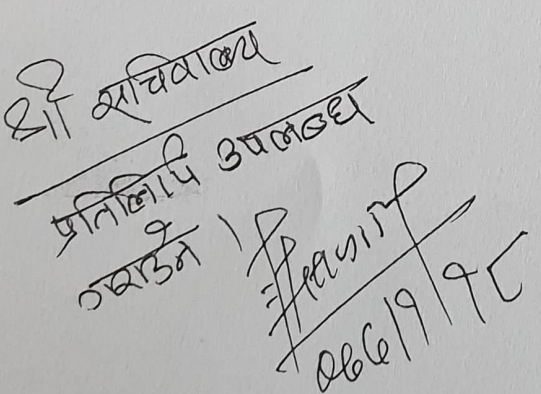 श्री सचिवालय
प्रतिलिपि उपलब्ध
गराउने ।
०७७/१/१८